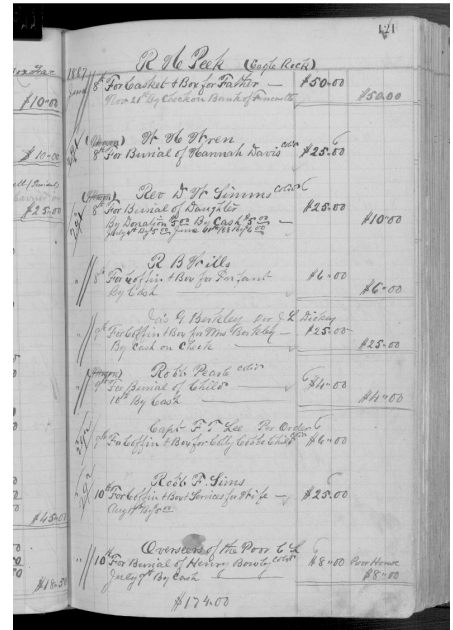 121
R W Peek (Eagle Rock)
1887
June 8th For Casket & Box for Father — $50.00
Nov 28th By Check on Bank of Fincastle $50.00
W W Wren
8th For Burial of Hannah Davis cold $25.00
Rev D W Simms cold
8th For Burial of Daughter $25.00
By Donation $5.00 By Cash $5.00 $10.00
R B Wills
8th For Coffin & Box for Infant $6.00
By Cash $6.00
Jas G Berkley per J L Dickey
9th For Coffin & Box for Mrs Berkley — $25.00
By Cash on Check — $25.00
Robt Peark cold
9th For Burial of Child — $4.00
10th By Cash $4.00
Capt F T Lee Per Order
9th For Coffin & Box for Child $6.00
Robt F. Sims
10th For Coffin & Box & Services for Wife $25.00
Overseers of the Poor
10th For Burial of Henry cold $8.00 Poor House
July 9th By Cash $8.00
$174.00
$10.00
$10.00
$25.00
$45.00
$18.50